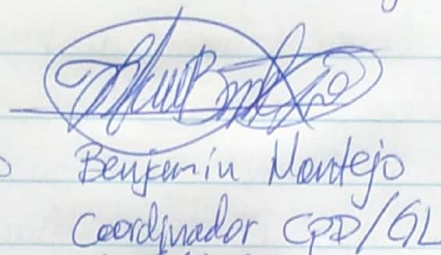 Benjamin Montejo
Coordinador CPD/GL